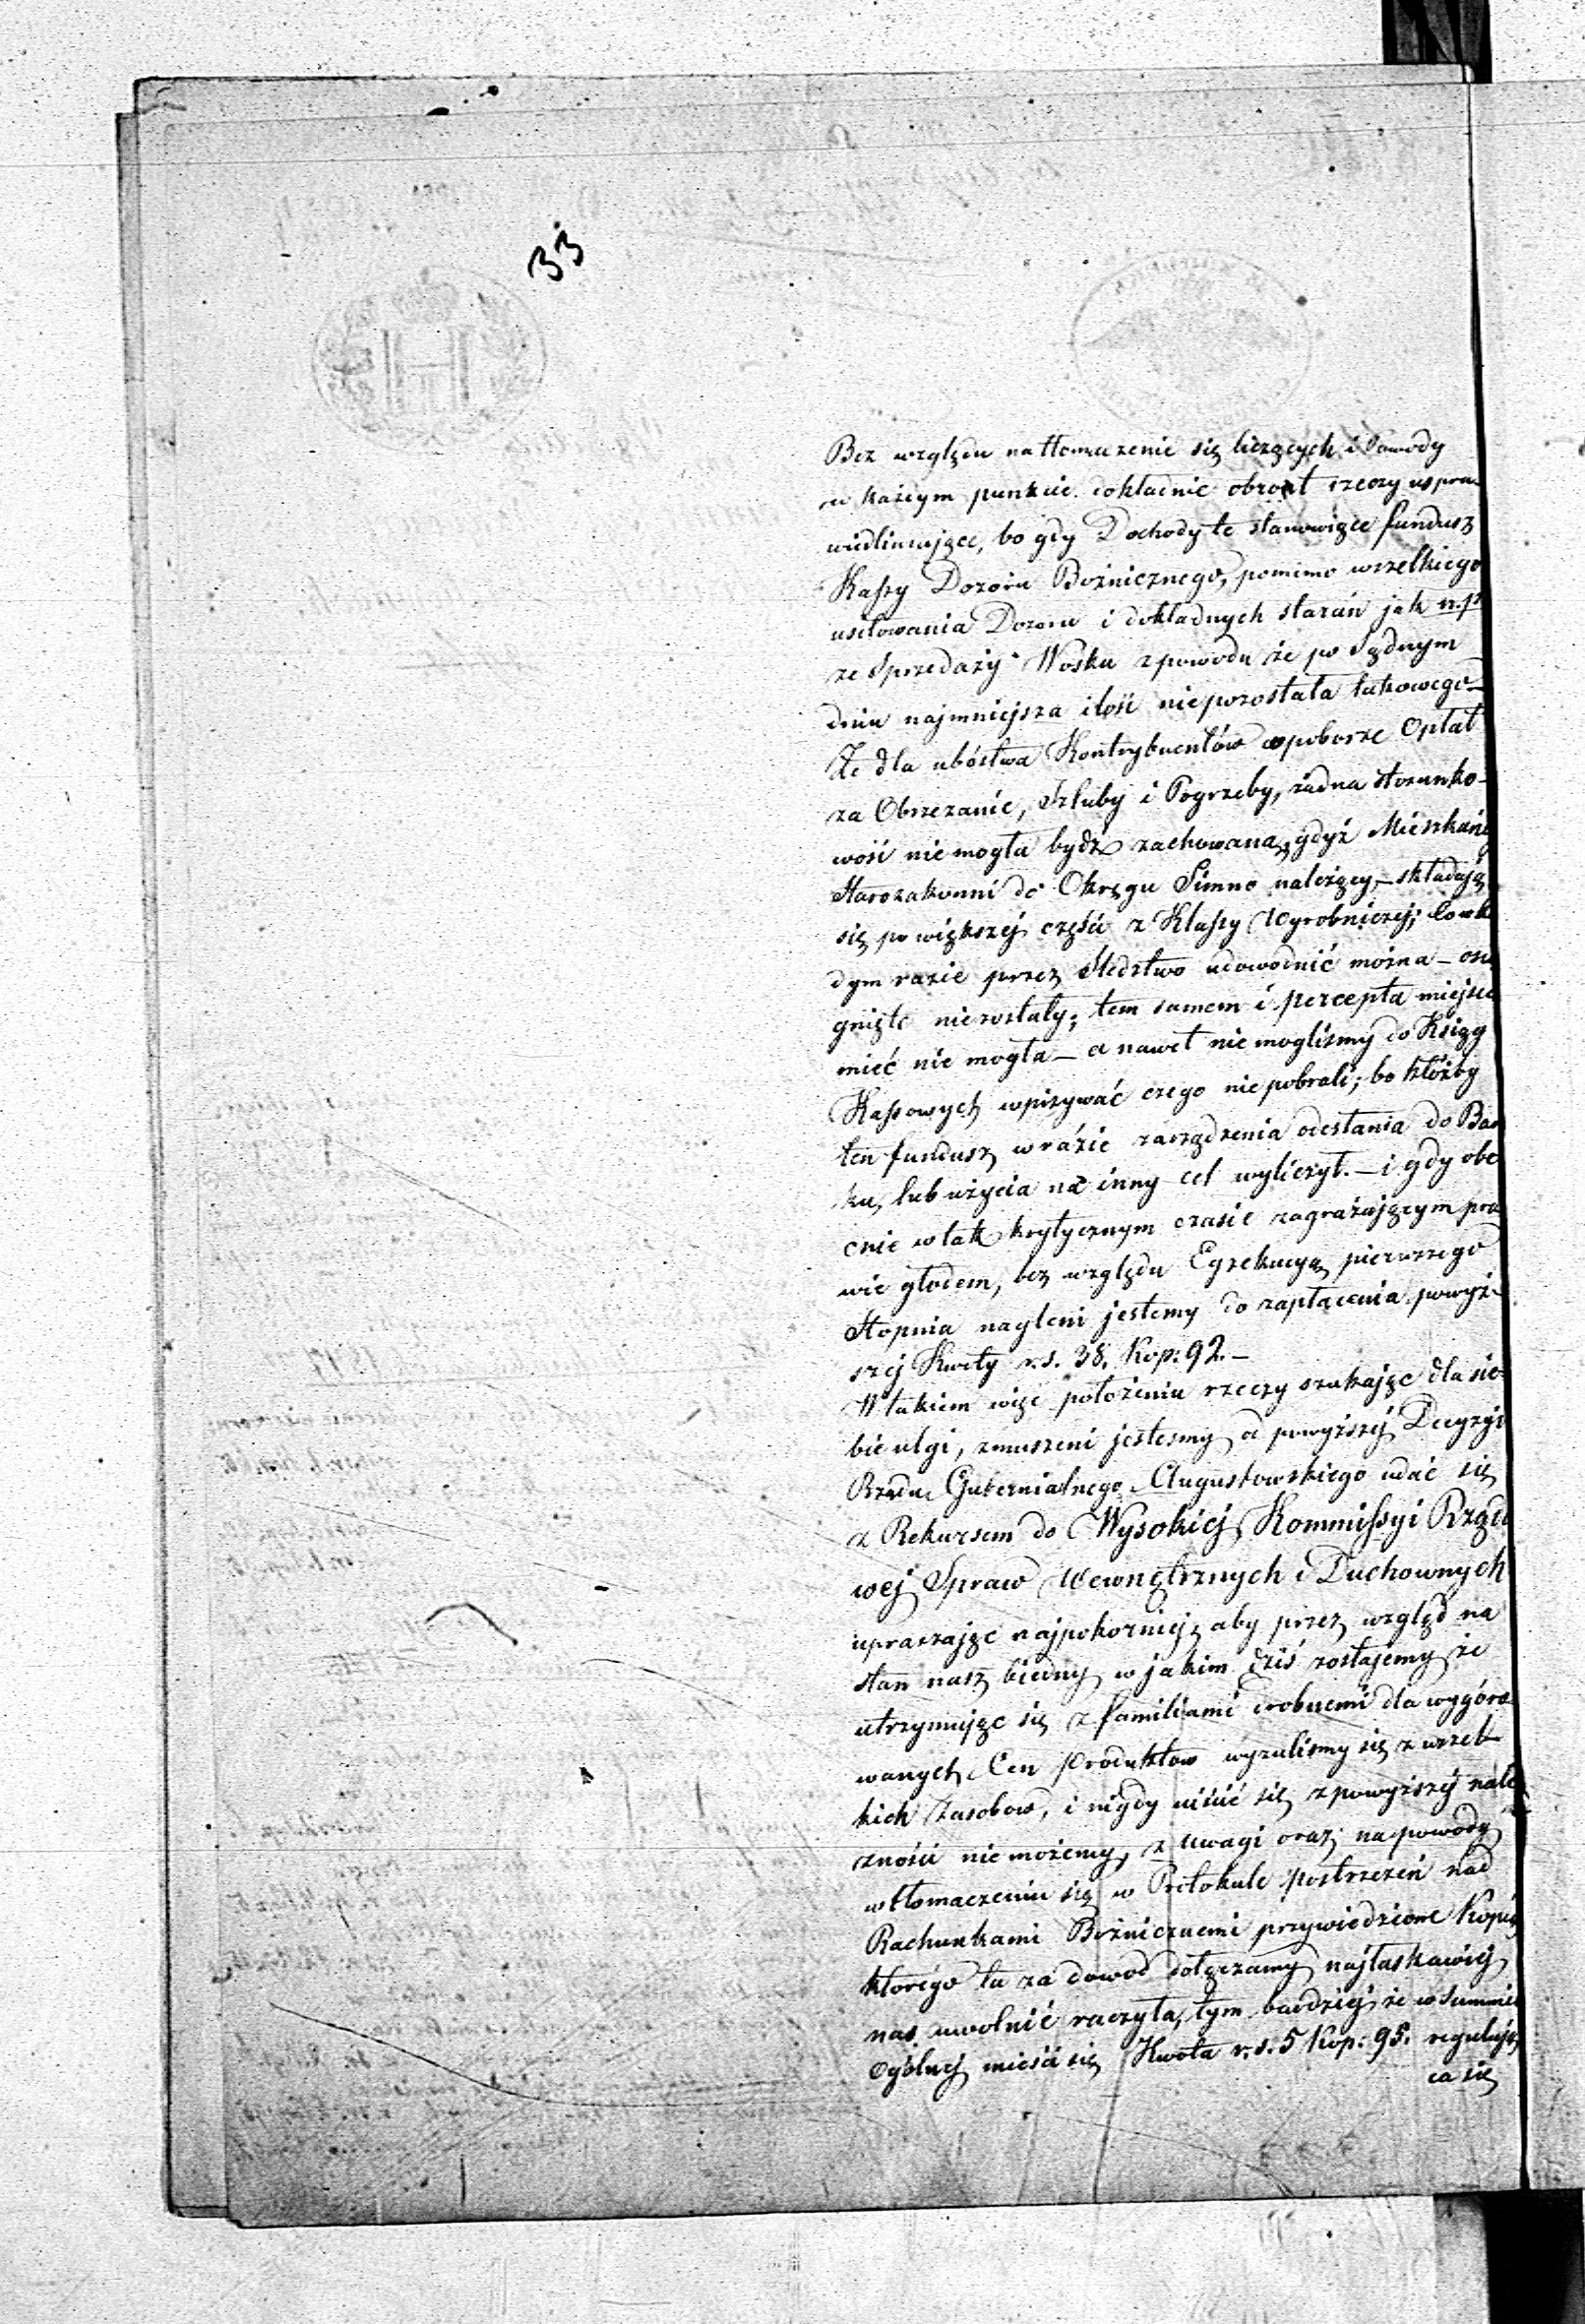 33
Bez względu na tłomaczenie się liczących i Dowody
w każdym punkcie dokładnie obrót rzeczy uspra-
wiedliwiające, bo gdy Dochody te stanowiące fundusz
Kassy Dozoru Bożnicznego, pomimo wszelkiego
usiłowania Dozoru i dokładnych starań jak n.p.
ze Sprzedaży Wosku z powodu że po Sądnym
dniu najmniejsza ilość niepozostała takowego –
Że dla ubóstwa Kontrybuentów w poborze Opłat
za Obrzezanie, Szluby i Pogrzeby, żadna stosunko-
wość niemogła bydź zachowana, gdyż Mieszkańcy
Starozakonni do Okręgu Simno należący, – składają
się po większej części z Klassy Wyrobniczej; co w każ
dym razie przez Sledztwo udowodnić można – osią
gnięte niezostały; tem samem i percepta miejsca
mieć nie mogła – a nawet niemogliśmy do Ksiąg
Kassowych wpisywać czego niepobrali; bo któżby
ten fundusz w razie zarządzenia odesłania do Ban
ku, lub użycia na inny cel wyliczył. – i gdy obe
cnie w tak krytycznym czasie zagrażającym pra
wie głodem, bez względu Egzekucyą pierwszego
Stopnia nagleni jestemy do zapłacenia powyż-
szej Kwoty r.s. 38. Kop: 92. –
W takiem więc położeniu rzeczy szukając dla sie-
bie ulgi, zmuszeni jestesmy od powyższej Decyzyi
Rządu Gubernialnego Augustowskiego udać się
z Rekursem do Wysokiej Kommissyi Rządo
wej Spraw Wewnętrznych i Duchownych
upraszając najpokorniej, aby przez wzgląd na
stan nasz biedny w jakim dziś zostajemy, że
utrzymując się z familiami drobnemi dla wygóro-
wanych Cen Produktow wyzuliśmy się z wszel-
kich zasobow, i nigdy uiścić się z powyższej nale
żności nie możemy, z uwagi oraz na powody
w tłomaczeniu się w Protokule postrzeżeń nad
Rachunkami Bożnicznemi przywiedzione Kopią
którego tu za dowod dołączamy najłaskawiej
nas uwolnić raczyła, tym bardziej że w Summie
Ogólnej mieści się Kwota r.s. 5 Kop: 95. regulują
ca się